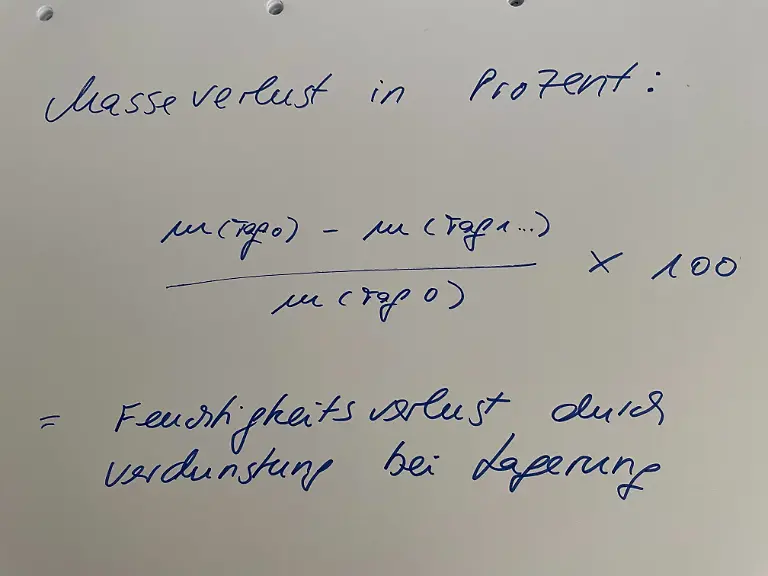 Masseverlust in Prozent:
m (Tag 0) - m (Tag 1...)
m (Tag 0)
× 100
= Feuchtigkeitsverlust durch
verdunstung bei Lagerung